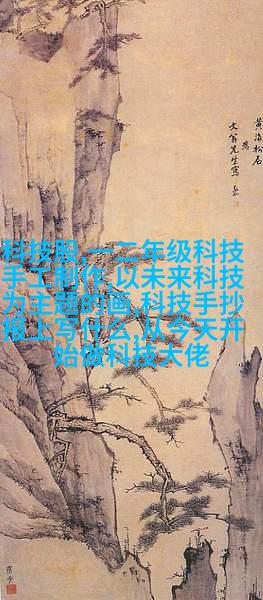 科技股,一二年级科技
手工制作,以未来科技
为主题的画,科技手抄
报上写什么,从今天开
始做科技大佬
黄海松石
为
文翁先生写